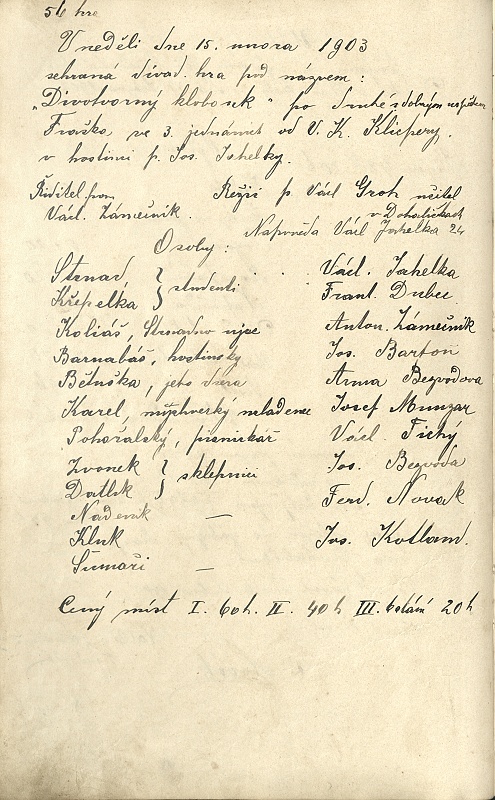 54 hra
V neděli dne 15. února 1903
sehraná divad. hra pod názvem:
"Divotvorný klobouk" po druhé s dobrým
Fraška ve 3. jednáních od V. K. Klicpery.
v hostinci p. Jos. Jahelky.
Řiditel
Režií p. Václ Groh učitel
v Dohaličkách
Václ. Zámečník.
Napověda Václ Jahelka 24
Osoby:
Strnad } studenti Václ. Jahelka
Křepelka Frant. Dubec
Koliáš, Strnadův ujec Anton. Zámečník
Barnabáš, hostinský Jos. Bartoň
Bětuška, jeho dcera Anna Bezvodova
Karel, mládenec Josef Munzar
Pohořalský, písničkář Václ. Tichý
Zvonek } sklepníci Jos. Bezvoda
Datlík Ferd. Novák
Nádeník —
Kluk Jos. Kotland.
Šumaři —
Ceny míst I. 60 h. II. 40 h III. k stání 20 h